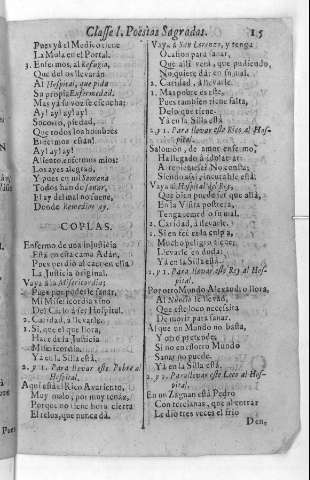 Classe I. Poesias Sagradas. 15
Pues yá el Medico tiene
La Mula en el Portal.
3. Enfermos, al Refugio,
Que dél os llevarán
Al Hospital, que pide
Su propia Enfermedad.
Mas yá su voz se escucha;
Ay! ay! ay! ay!
Socorro, piedad,
Que todos los hombres
Enfermos están!
Ay! ay! ay!
Aliento, enfermos mios:
Los ayes alegrad,
Y pues en mi Semana
Todos han de sanar,
El ay del mal no suene,
Donde Remedios ay.
COPLAS.
Enfermo de una injusticia
Está en esta cama Adán,
Pues perdió al caer en ella
La Justicia original.
Vaya à la Misericordia;
Pues por poderle sanar,
Mi Misericordia vino
Del Cielo à ser Hospital.
2. Caridad, à llevarle.
1. Si, que el que llora,
Hace de la Justicia
Misericordia.
Yà en la Silla està.
2. y 1. Para llevar este Pobre al
Hospital.
Aqui està el Rico Avariento,
Muy malo, por muy tenáz,
Porque no tiene hora cierta
El relox, que nunca dá.
Vaya à San Lorenzo, y tenga
Ocasion para sanar,
Que alli verá, que pudiendo,
No quiere dár en su mal.
2. Caridad, à llevarle.
1. Mas pobre es este,
Pues tambien tiene falta,
De lo que tiene.
Yà en la Silla està
2. y 1. Para llevar este Rico al Hos-
pital.
Salomón, de amor enfermo,
Ha llegado à idolatrar:
Arrepientese? No consta;
Siendo assi, incurable está.
Vaya al Hospital del Rey,
Que bien puede ser que allá,
En la Visita postrera,
Tenga cura su mal.
2. Caridad, à llevarle.
1. Si en fee es la culpa,
Mucho peligro tiene
Llevarle en duda:
Yà en la Silla està.
2. y 1. Para llevar este Rey al Hos-
pital.
Por otro Mundo Alexandro llora,
Al Nuncio le llevad,
Que este loco necesita
De morir para sanar.
Al que un Mundo no basta,
Y otro pretende;
Si no en el otro Mundo
Sanar no puede.
Yà en la Silla està.
2. y 1. Para llevar este Loco al Hos-
pital.
En un Zaguan está Pedro
Con tercianas, que al entrar
Le dió tres veces el frio
Den-